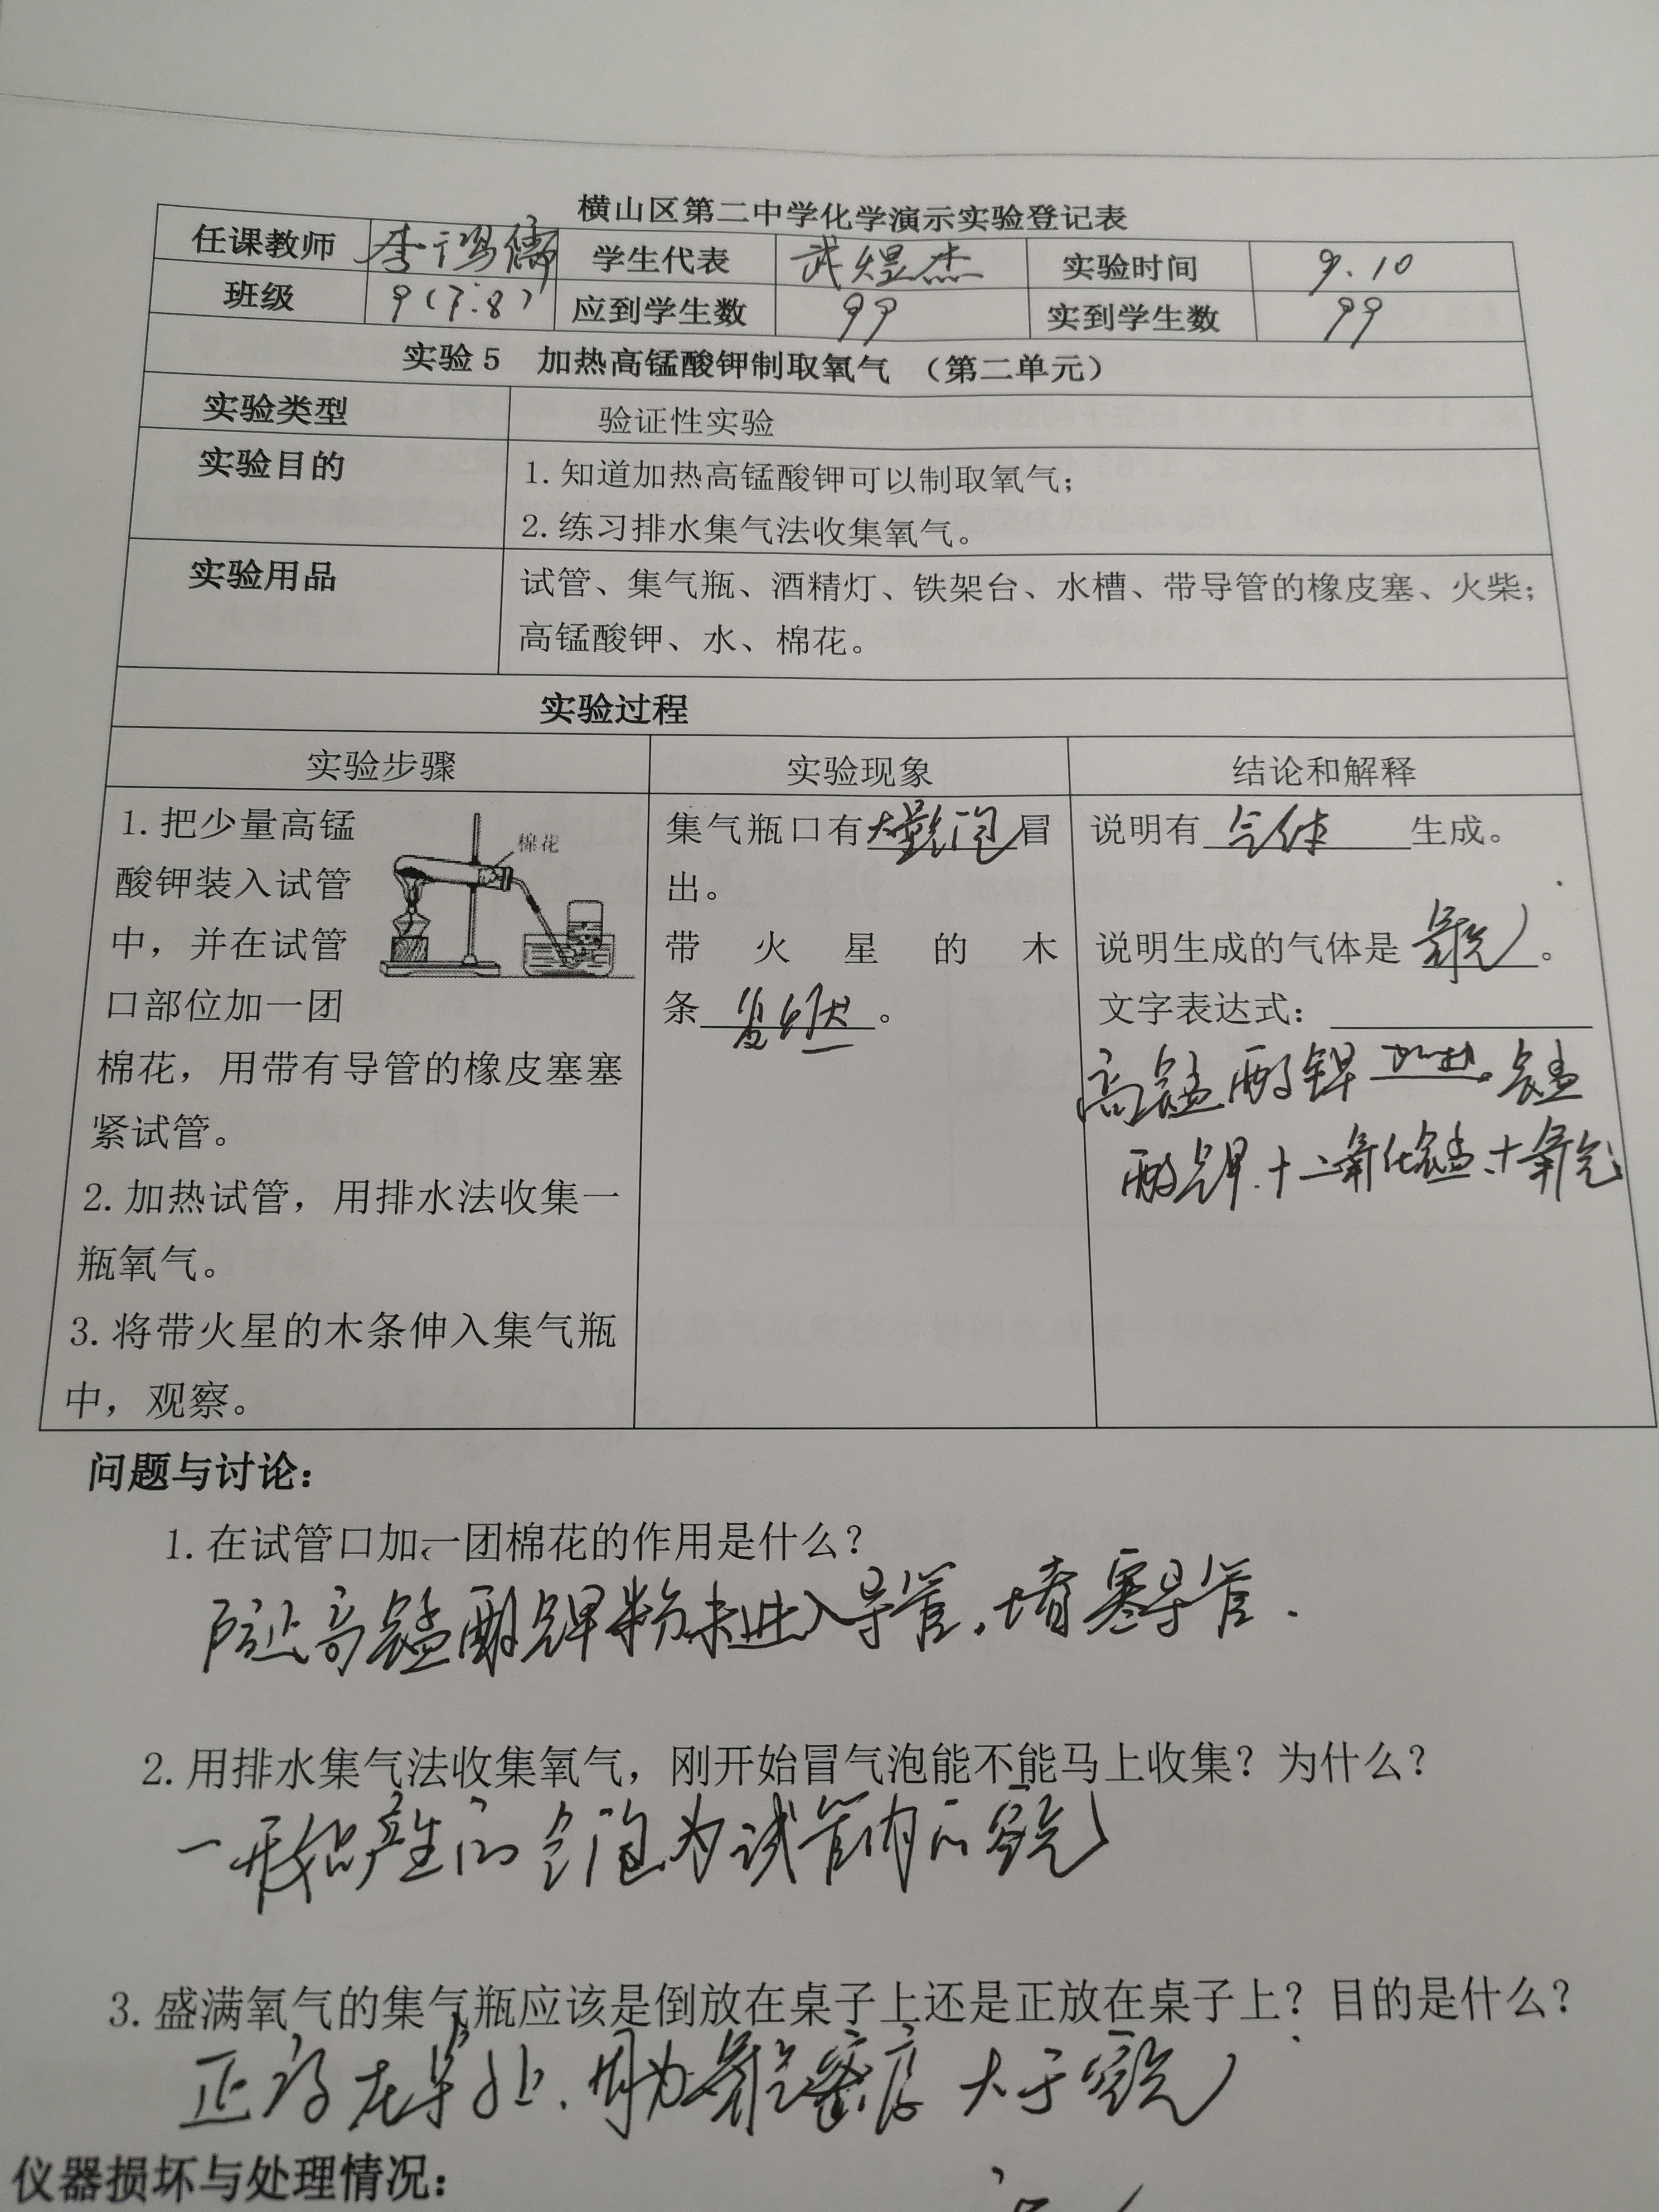 横山区第二中学化学演示实验登记表
任课教师 李 学生代表 武煜杰 实验时间 9.10
班级 9(7.8) 应到学生数 99 实到学生数 99
实验5 加热高锰酸钾制取氧气 （第二单元）
实验类型 验证性实验
实验目的 1.知道加热高锰酸钾可以制取氧气；
2.练习排水集气法收集氧气。
实验用品 试管、集气瓶、酒精灯、铁架台、水槽、带导管的橡皮塞、火柴；
高锰酸钾、水、棉花。
实验过程
实验步骤 实验现象 结论和解释
1.把少量高锰
酸钾装入试管
中，并在试管
口部位加一团
棉花，用带有导管的橡皮塞塞
紧试管。
2.加热试管，用排水法收集一
瓶氧气。
3.将带火星的木条伸入集气瓶
中，观察。
棉花
集气瓶口有大量气泡冒
出。
带火星的木
条复燃。
说明有气体生成。
说明生成的气体是氧气。
文字表达式：
高锰酸钾 加热→ 锰
酸钾+二氧化锰+氧气
问题与讨论：
1.在试管口加一团棉花的作用是什么？
防止高锰酸钾粉末进入导管，堵塞导管.
2.用排水集气法收集氧气，刚开始冒气泡能不能马上收集？为什么？
一开始产生的气泡为试管内的空气
3.盛满氧气的集气瓶应该是倒放在桌子上还是正放在桌子上？目的是什么？
正放在桌子上.因为氧气密度大于空气
仪器损坏与处理情况：